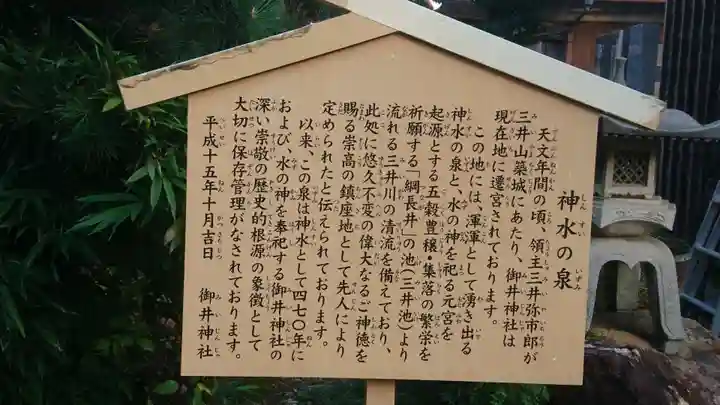 神水の泉
天文年間の頃、領主三井弥市郎が
三井山築城にあたり、御井神社は
現在地に遷宮されております。
この地には、渾渾として湧き出る
神水の泉と、水の神を祀る元宮を
起源とする五穀豊穣・集落の繁栄を
祈願する「綱長井」の池（三井池）より
流れる三井川の清流を備えており、
此処に悠久不変の偉大なるご神徳を
賜る崇高の鎮座地として先人により
定められたと伝えられております。
以来、この泉は神水として四七〇年に
および、水の神を奉祀する御井神社の
深い崇敬の歴史的根源の象徴として
大切に保存管理がなされております。
平成十五年十月吉日　御井神社